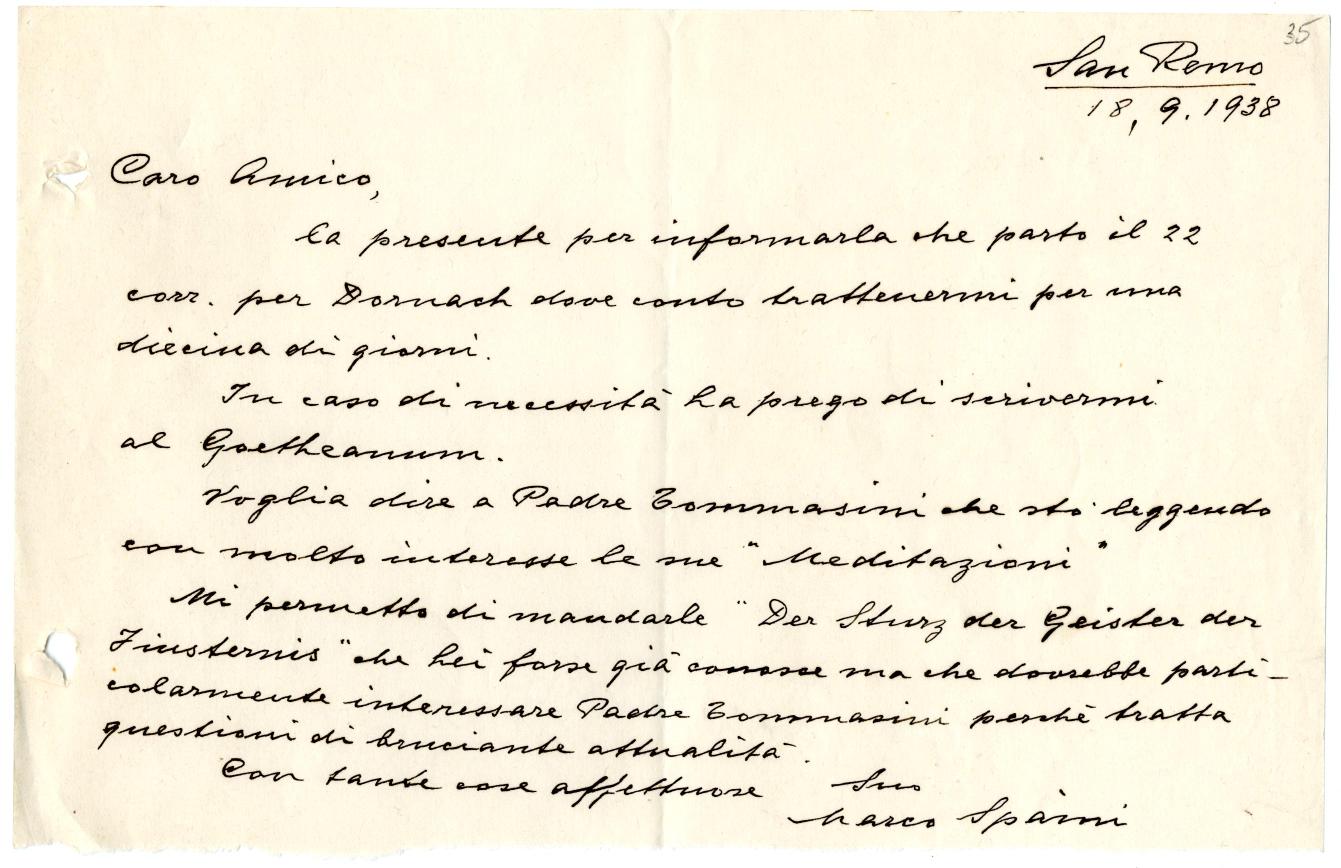 35
San Remo
18, 9. 1938
Caro Amico,
la presente per informarla che parto il 22
corr. per Dornach dove conto trattenermi per una
diecina di giorni.
In caso di necessità La prego di scrivermi
al Goetheanum.
Voglia dire a Padre Tommasini che sto leggendo
con molto interesse le sue "Meditazioni"
Mi permetto di mandarle "Der Sturz der Geister der
Finsternis" che Lei forse già conosce ma che dovrebbe parti-
colarmente interessare Padre Tommasini perchè tratta
questioni di bruciante attualità.
Con tante cose affettuose Suo
Marco Spàini